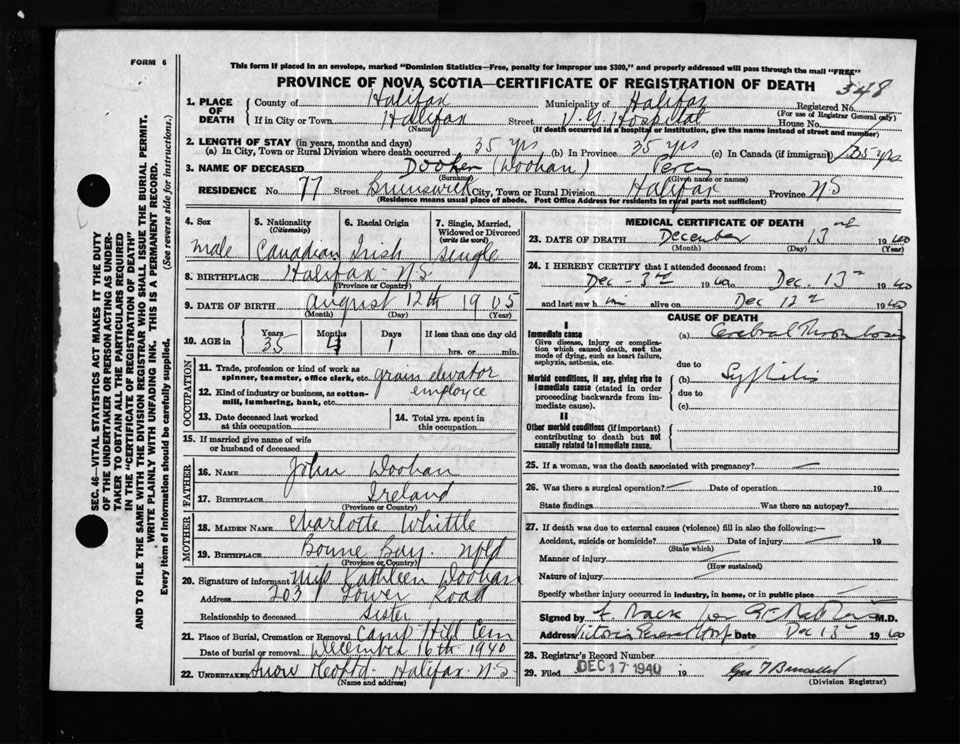 FORM 6
This form if placed in an envelope, marked "Dominion Statistics—Free, penalty for improper use $300," and properly addressed will pass through the mail "FREE"
PROVINCE OF NOVA SCOTIA—CERTIFICATE OF REGISTRATION OF DEATH
348
1. PLACE OF DEATH
County of Halifax Municipality of Halifax Registered No.
(For use of Registrar General only)
If in City or Town Halifax Street V.G. Hospital House No.
(Name) (If death occurred in a hospital or institution, give the name instead of street and number)
2. LENGTH OF STAY (in years, months and days)
(a) In City, Town or Rural Division where death occurred 35 yrs (b) In Province 35 yrs (c) In Canada (if immigrant) 35 yrs
3. NAME OF DECEASED (Doohan) Percy
(Surname) (Given name or names)
RESIDENCE No. 77 Street Brunswick City, Town or Rural Division Halifax Province N.S
(Residence means usual place of abode. Post Office Address for residents in rural parts not sufficient)
4. Sex
male
5. Nationality
(Citizenship)
Canadian
6. Racial Origin
Irish
7. Single, Married, Widowed or Divorced
(write the word)
Single
8. BIRTHPLACE Halifax N.S.
(Province or Country)
9. DATE OF BIRTH August 12th 1905
(Month) (Day) (Year)
10. AGE in
Years Months Days If less than one day old
35 4 1 hrs. or min.
OCCUPATION
11. Trade, profession or kind of work as spinner, teamster, office clerk, etc. grain elevator
12. Kind of industry or business, as cotton-mill, lumbering, bank, etc. employee
13. Date deceased last worked at this occupation
14. Total yrs. spent in this occupation
15. If married give name of wife or husband of deceased
FATHER
16. NAME John Doohan
17. BIRTHPLACE Ireland
(Province or Country)
MOTHER
18. MAIDEN NAME Charlotte Whittle
19. BIRTHPLACE Bonne Bay. Nfld
(Province or Country)
20. Signature of informant Miss Kathleen Doohan
Address 203 Tower Road
Relationship to deceased Sister
21. Place of Burial, Cremation or Removal Camp Hill Cem
Date of burial or removal December 16th 1940
22. UNDERTAKER Snow & Co Ltd. Halifax N.S
(Name and address)
MEDICAL CERTIFICATE OF DEATH
23. DATE OF DEATH December 13 1940
(Month) (Day) (Year)
24. I HEREBY CERTIFY that I attended deceased from:
Dec - 3rd 1940 to Dec. 13 1940
and last saw h im alive on Dec 12 1940
CAUSE OF DEATH
I
Immediate cause
Give disease, injury or complication which caused death, not the mode of dying, such as heart failure, asphyxia, asthenia, etc.
(a) Cerebral Thrombosis
due to
Morbid conditions, if any, giving rise to immediate cause (stated in order proceeding backwards from immediate cause).
(b) Syphilis
due to
(c)
II
Other morbid conditions (if important) contributing to death but not causally related to immediate cause.
25. If a woman, was the death associated with pregnancy?
26. Was there a surgical operation? Date of operation 19
State findings Was there an autopsy?
27. If death was due to external causes (violence) fill in also the following:—
Accident, suicide or homicide? Date of injury 19
(State which)
Manner of injury
(How sustained)
Nature of injury
Specify whether injury occurred in industry, in home, or in public place
Signed by M.D.
Address Victoria General Hosp Date Dec 13 1940
28. Registrar's Record Number
29. Filed DEC 17 1940 19
(Division Registrar)
SEC. 46—VITAL STATISTICS ACT MAKES IT THE DUTY
OF THE UNDERTAKER OR PERSON ACTING AS UNDER-
TAKER TO OBTAIN ALL THE PARTICULARS REQUIRED
IN THE "CERTIFICATE OF REGISTRATION OF DEATH"
AND TO FILE THE SAME WITH THE DIVISION REGISTRAR WHO SHALL ISSUE THE BURIAL PERMIT.
WRITE PLAINLY WITH UNFADING INK. THIS IS A PERMANENT RECORD.
Every item of information should be carefully supplied. (See reverse side for instructions.)